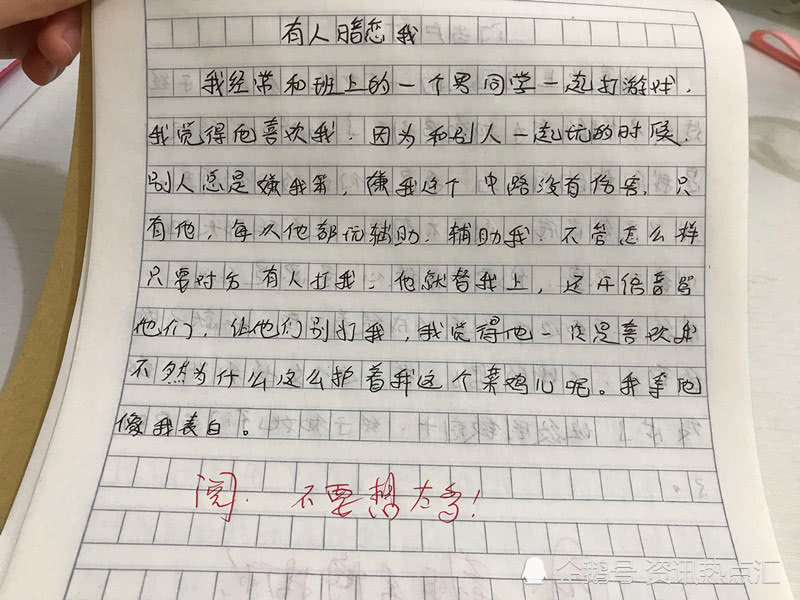 有人暗恋我
我经常和班上的一个男同学一起打游戏，
我觉得他喜欢我。因为和别人一起玩的时候，
别人总是嫌我笨，嫌我这个中路没有伤害，只
有他，每次他都玩辅助，辅助我。不管怎么样
只要对方有人打我，他就替我上，还开语音骂
他们，让他们别打我，我觉得他一定是喜欢我
不然为什么这么护着我这个菜鸡儿呢。我等他
像我表白。
阅。不要想太多！
企鹅号 资讯热点汇